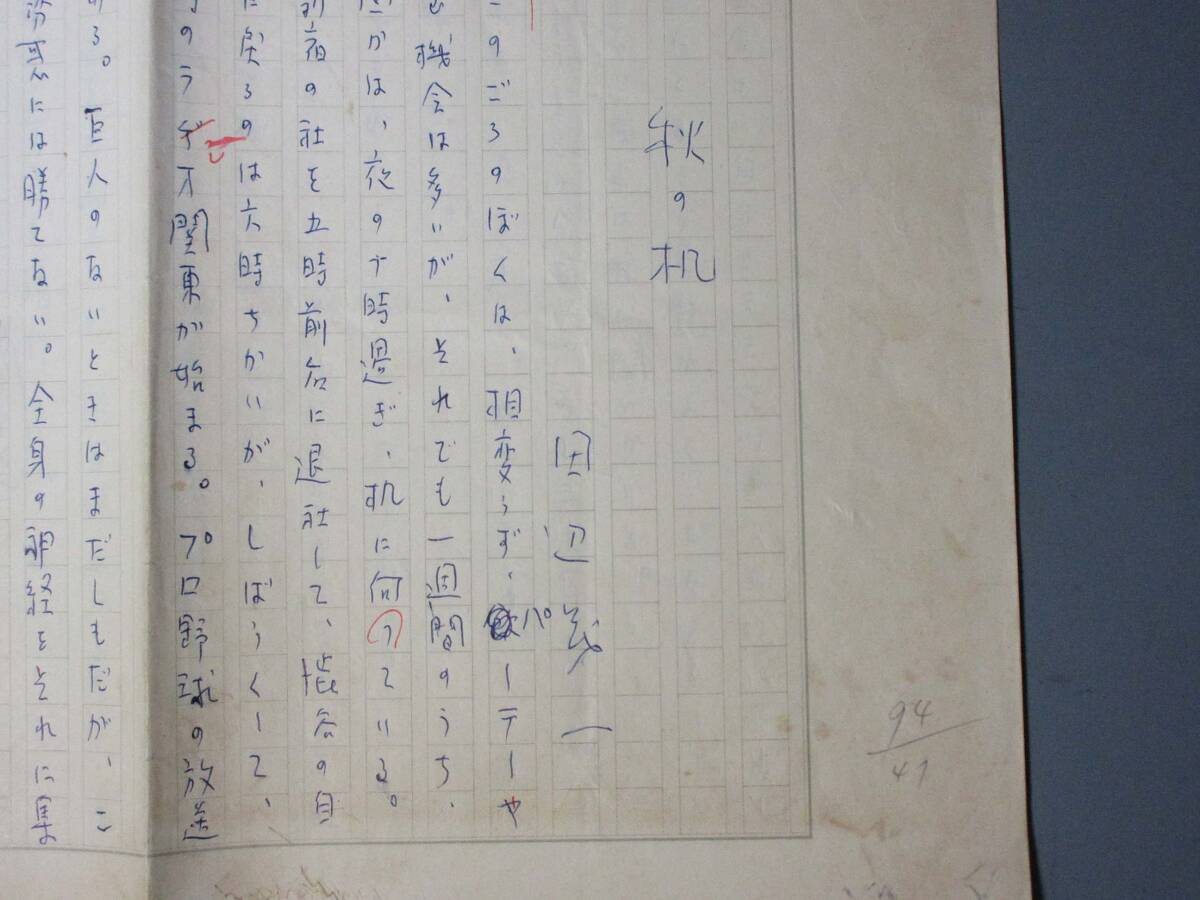 秋の机
田辺茂一
このごろのぼくは、相変らず、パーテーや
機会は多いが、それでも一週間のうち、
かは、夜の十時過ぎ、机に向っている。
新宿の社を五時前後に退社して、渋谷の自
に戻るのは六時ちかいが、しばらくして、
のラジオ関東が始まる。プロ野球の放送
る。巨人のないときはまだしもだが、こ
には勝てない。全身の神経をそれに集
94
47